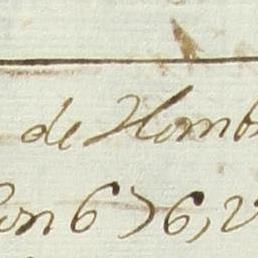 de Homb
on 6 > 6, v